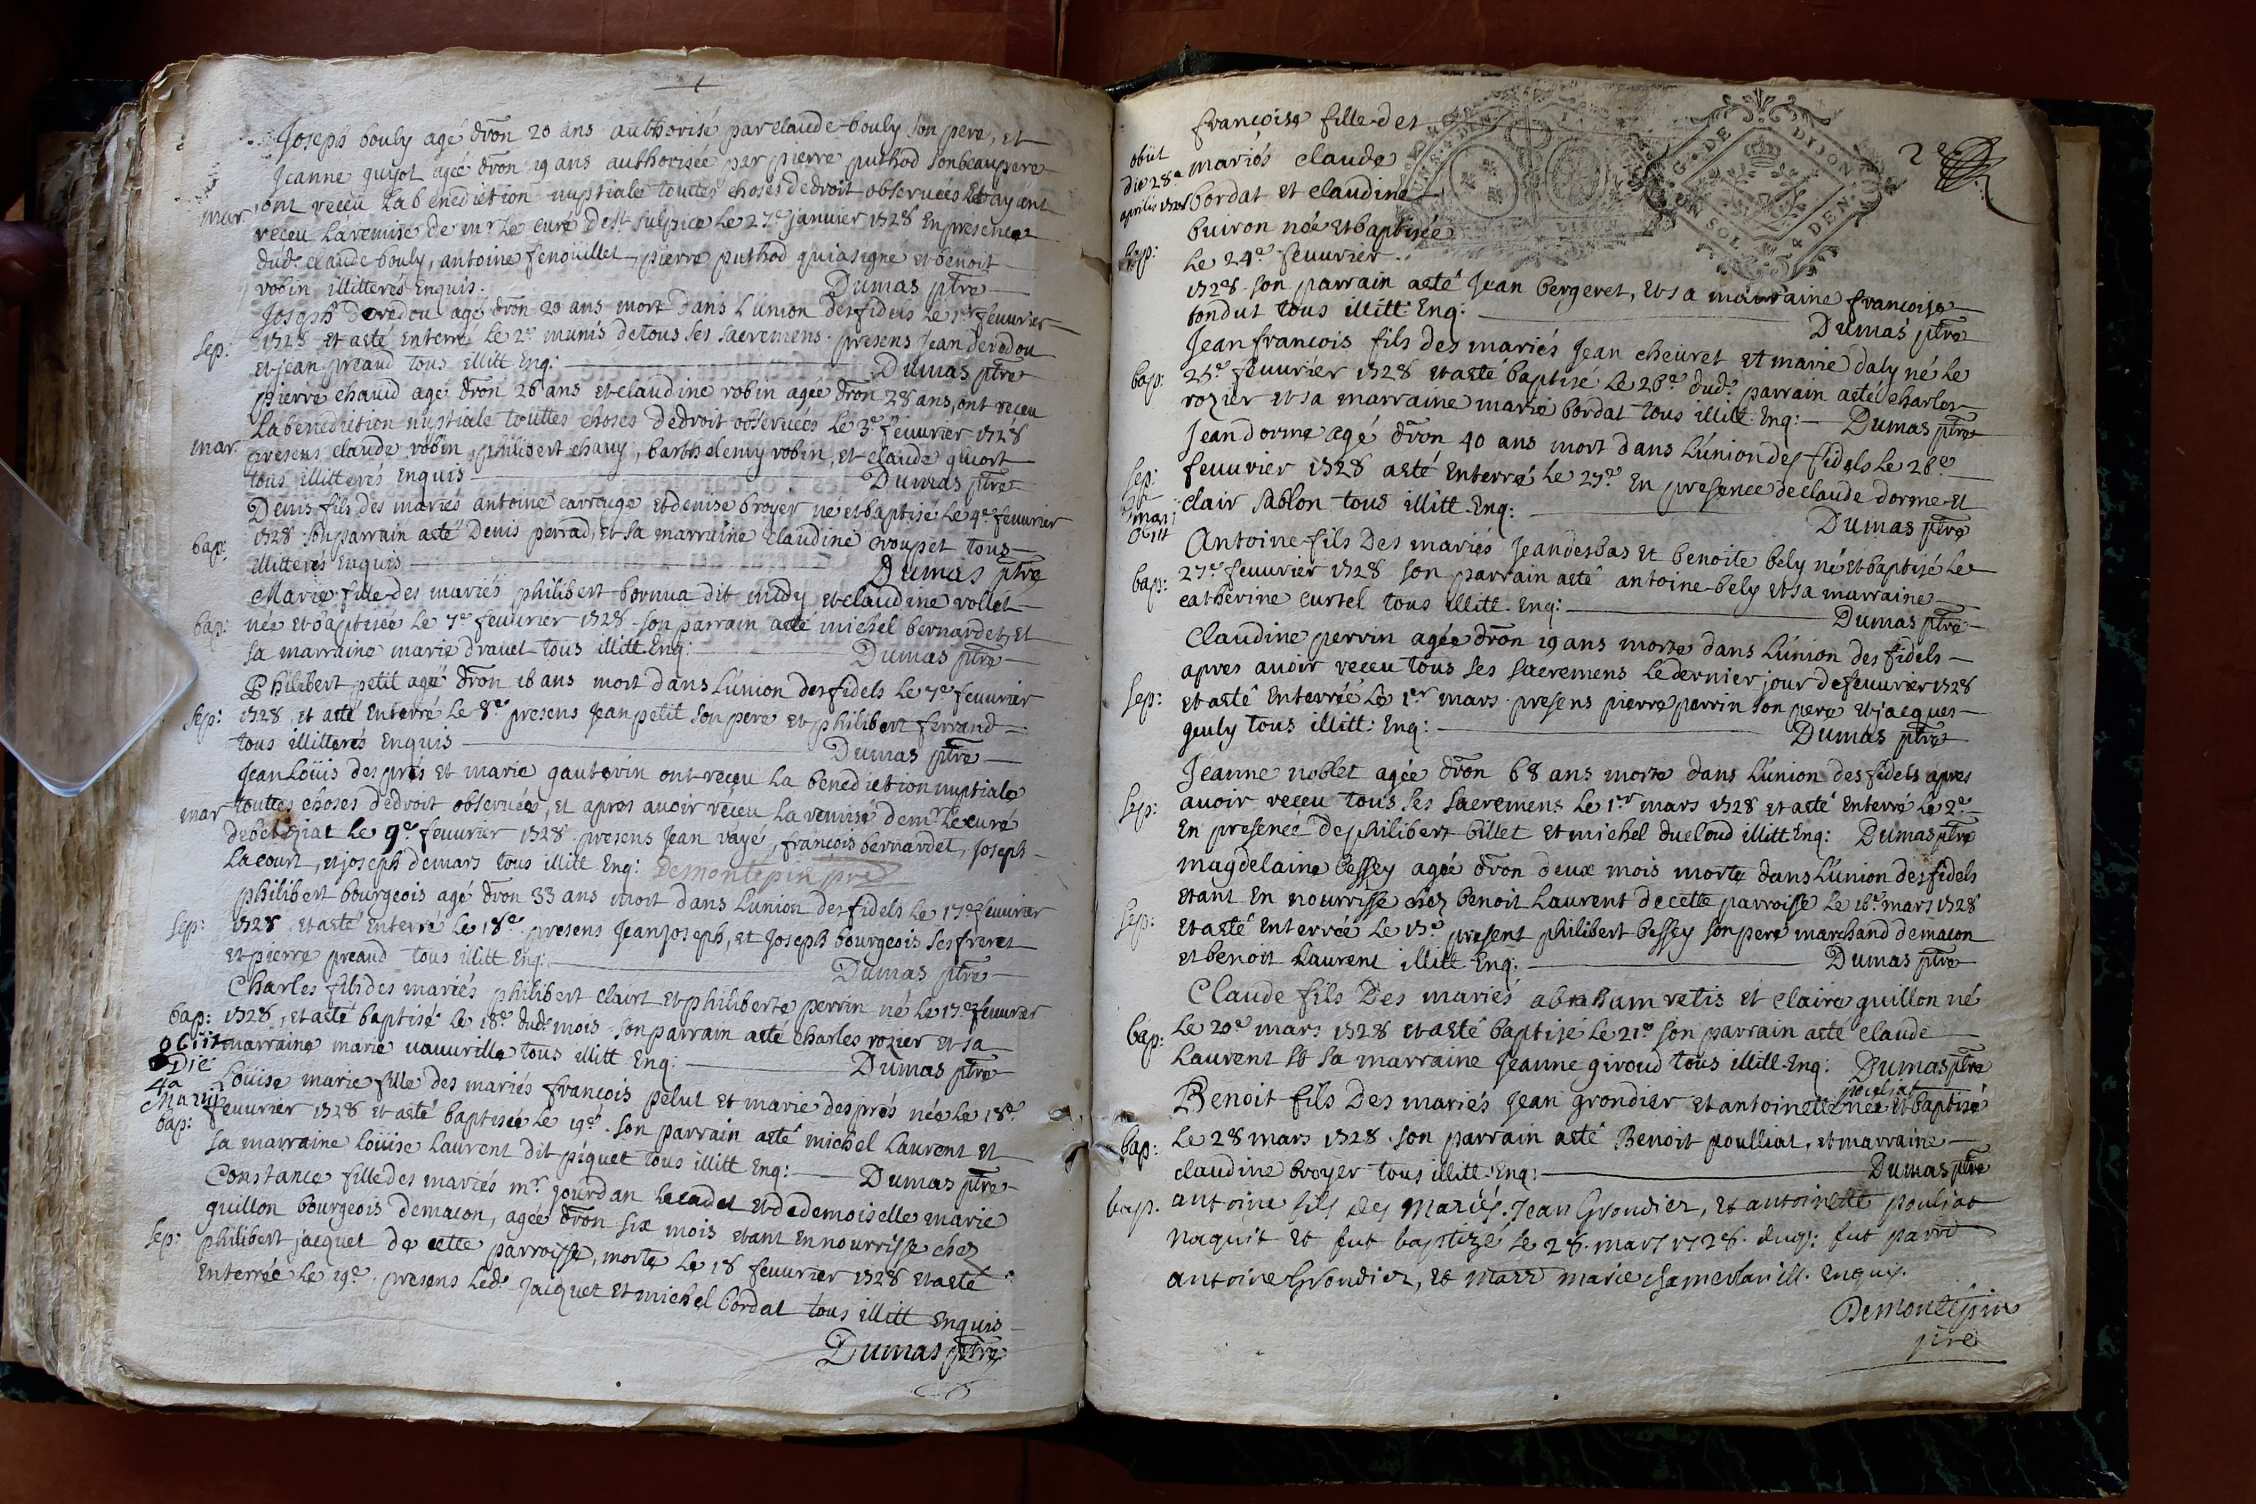 Joseph bouly agé dron 20 ans authorisé par claude bouly son pere, et
Jeanne guyot agée dron 19 ans authorisée par pierre puthod son beaupere
ont receu la benediction nuptiale toutes choses de droit observées et ayant
mar receu la remise de mr le curé de st sulpice le 27e janvier 1728 En presence
dud. claude bouly, antoine fenoüillet, pierre puthod qui a signe et benoit
robin illitterés Enquis. Dumas ptre
Joseph deredou agé dron 20 ans mort dans L'union des fidels le 1er feuurier
sep: 1728 et a eté Enterré le 2e munis de tous ses sacremens. presens Jean deredou
et jean preaud tous illitt Enq: Dumas ptre
pierre chaud agé dron 26 ans et claudine robin agée dron 28 ans, ont receu
La benediction nuptiale touttes choses de droit observées le 3e feuurier 1728
mar presens claude robin, philibert chauy, barthelemy robin, et claude guiort
tous illitterés Enquis Dumas ptre
Denis fils des mariés antoine carrouge et denise broyer né et baptisé le 4e feuurier
bap: 1728 son parrain a eté Denis perrad, et sa marraine claudine croupet tous
illitterés Enquis Dumas ptre
Marie fille des mariés philibert bornua dit midy et claudine rollet
bap: née et baptisée le 7e feuurier 1728. son parrain a eté michel bernardet, et
sa marraine marie drauet tous illitt Enq: Dumas ptre
Philibert petit agé dron 16 ans mort dans L'union des fidels le 7e feuurier
sep: 1728, et a eté Enterré le 8e presens Jean petit son pere et philibert ferrand
tous illitterés Enquis Dumas ptre
Jean Loüis des prés et marie gauterin ont receu la benediction nuptiale
mar touttes choses de droit observées, et apres avoir receu la remise de mr le curé
de le 9e feuurier 1728. presens Jean vayé, françois bernardet, Joseph
Lacourt, et joseph demars tous illitt Enq: Demontépin pre
philibert bourgeois agé dron 33 ans mort dans L'union des fidels le 17e feuurier
sep: 1728, et a eté Enterré le 18e. presens Jean joseph, et Joseph bourgeois ses freres
et pierre preaud tous illitt Enq: Dumas ptre
Charles fils des mariés philibert clairt et philiberte perrin né le 17e feuurier
bap: 1728, et a eté baptisé le 18e dud. mois. son parrain a eté charles rozier et sa
obiit marraine marie vauurille tous illitt Enq: Dumas ptre
Die Loüise marie fille des mariés françois pelut et marie des prés née le 18e
4a Martii feuurier 1728 et a eté baptisée le 19e. son parrain a eté michel Laurent et
bap: sa marraine loüise Laurent dit piquet tous illitt Enq: Dumas ptre
Constance fille des mariés mr. jourdan le cadet et de demoiselle marie
guillon bourgeois de macon, agée dron six mois etant En nourrisse chez
sep: philibert jacquet de cette parroisse, morte le 18 feuurier 1728 et a eté
Enterrée le 19e. presens led. Jacquet et michel bordat tous illitt Enquis
Dumas ptre
françoise fille des
obiit mariés claude
die 28a bordat et claudine
aprilis 1728 buiron née et baptisée
bap: le 24e feuurier
1728. son parrain a eté Jean bergeret, et sa marraine françoise
bondut tous illitt Enq: Dumas ptre
G. DE DIJON
UN SOL 4 DEN.
2e
Jean françois fils des mariés Jean cheuret et marie daly né le
bap: 25e feuuriér 1728 et a eté baptisé le 26e dud. parrain a eté charles
rozier et sa marraine marie bordat tous illitt Enq: Dumas ptre
Jean dorme agé dron 40 ans mort dans L'union des fidels le 26e
sep: feuurier 1728 a eté Enterré le 27e En presence de claude dorme et
clair sablon tous illitt Enq: Dumas ptre
obiit
Antoine fils des mariés Jean desbas et benoite bely né et baptisé le
bap: 27e feuurier 1728 son parrain a eté antoine bely et sa marraine
catherine curtel tous illitt. Enq: Dumas ptre
Claudine perrin agée dron 19 ans morte dans L'union des fidels
apres avoir receu tous ses sacremens le dernier jour de feuurier 1728
sep: et a eté Enterrée le 1er mars. presens pierre perrin son pere et jacques
geuly tous illitt: Enq: Dumas ptre
Jeanne noblet agée dron 68 ans morte dans L'union des fidels apres
sep: avoir receu tous ses sacremens le 1er mars 1728 et a eté Enterré le 2e
En presence de philibert billet et michel ducloud illitt Enq: Dumas ptre
magdelaine bessey agée dron deux mois morte dans L'union des fidels
etant En nourrisse chez benoit Laurent de cette parroisse le 16e mars 1728
sep: et a eté Enterrée le 17e present philibert bessey son pere marchand de macon
et benoit Laurent illitt Enq: Dumas ptre
Claude fils des mariés abraham retis et claire guillon né
bap: le 20e mars 1728 et a eté baptisé le 21e son parrain a eté claude
Laurent et sa marraine Jeanne giroud tous illitt Enq: Dumas ptre
Benoit fils des mariés Jean grondier et antoinette pouliat né et baptisé
bap: le 28 mars 1728. son parrain a eté Benoit poulliat, et marraine
claudine broyer tous illitt: Enq: Dumas ptre
bap. antoine fils des mariés Jean Grondier, et antoinette pouliat
naquit et fut baptizé le 28. mars 1728. duq: fut parrd
antoine Grondier, et marr marie chamerlan ill. enquis.
Demontépin
pre